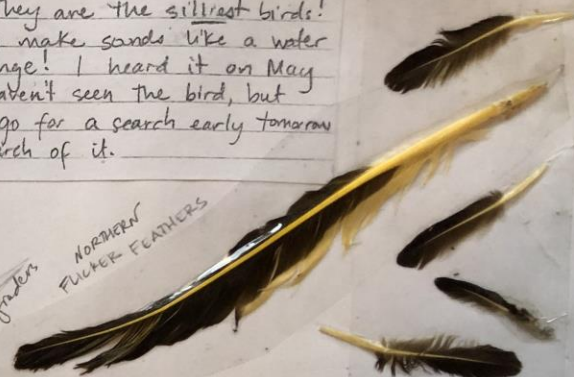 They are the silliest birds!
make sonds like a water
nge! I heard it on May
aven't seen the bird, but
go for a search early tomorrow
rch of it.
NORTHERN
FLICKER FEATHERS